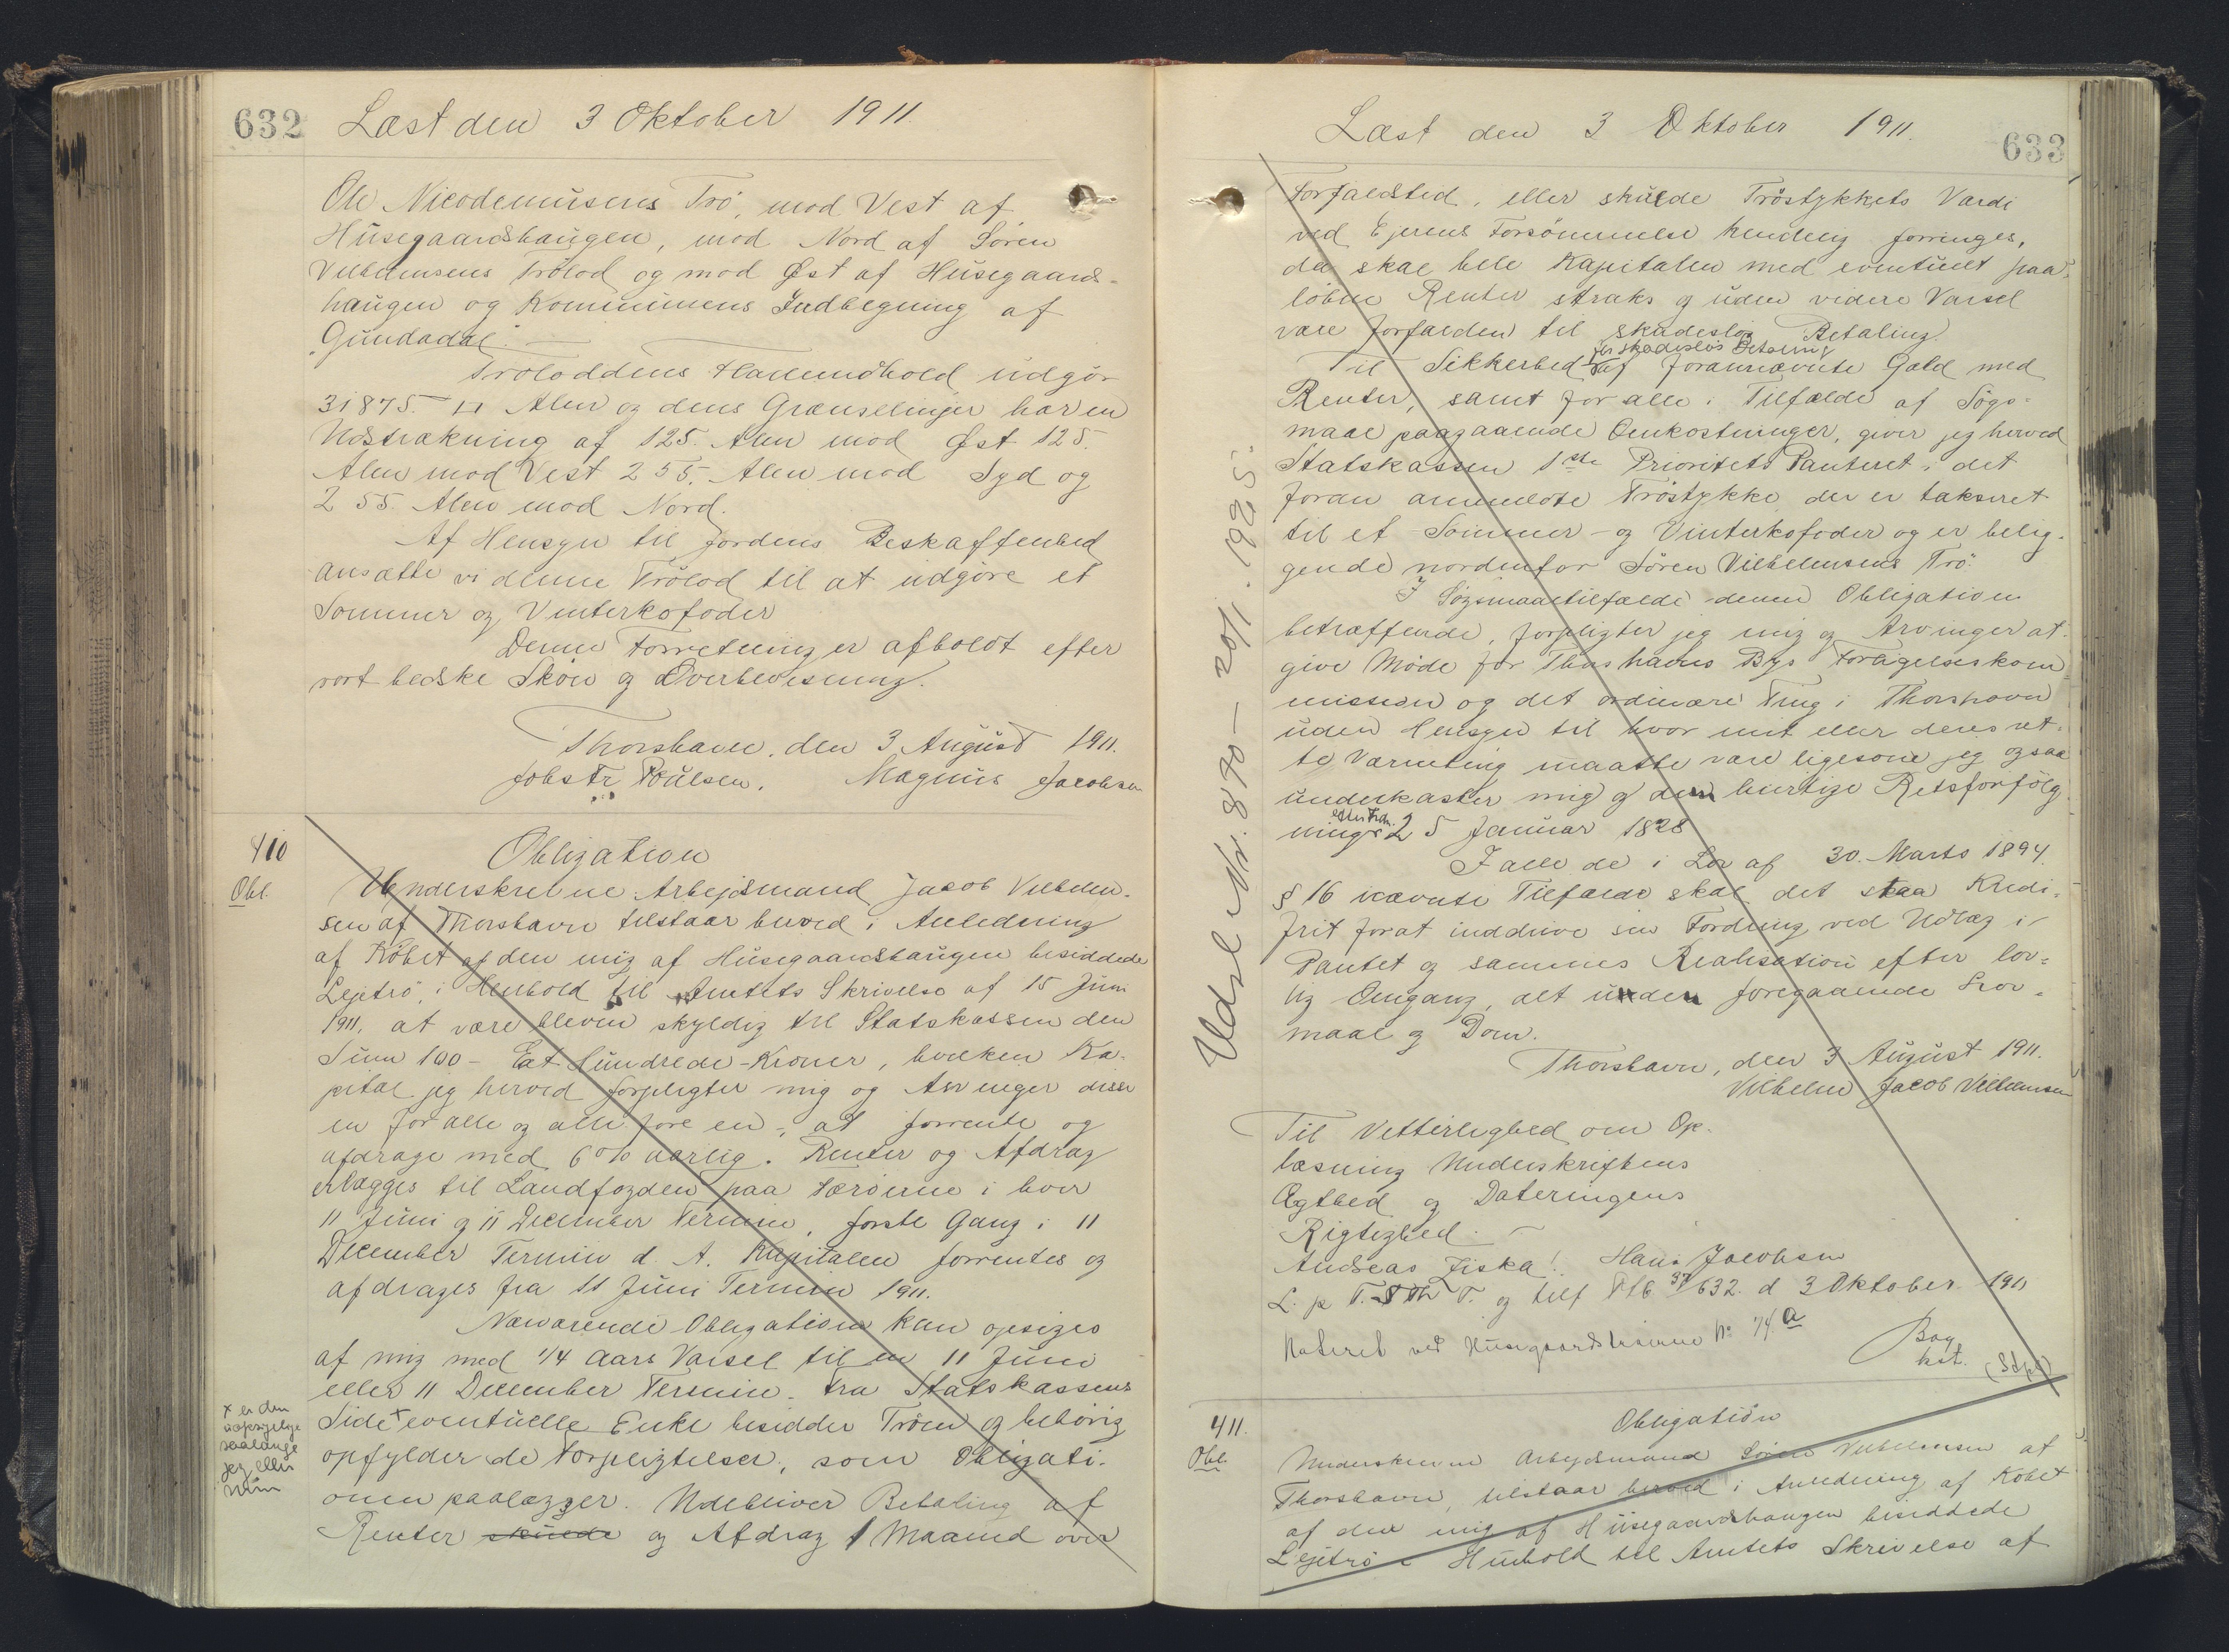 632
Læst den 3 Oktober 1911.
Ole Nicodemusens Trø, mod Vest af
Husegaardshaugen, mod Nord af Søren
Vilhelmsens Trølod og mod Øst af Husegaards-
haugen og Kommunens Indhegning af
"Gundadal".
Trøloddens Fladeindhold udgør
31875 □ Alen og dens Grænselinjer har en
Udstrækning af 125 Alen mod Øst 125.
Alen mod Vest 255. Alen mod Syd og
255. Alen mod Nord.
Af Hensyn til Jordens Beskaffenhed
ansætte vi denne Trølod til at udgøre et
Sommer og Vinterkofoder
Denne Forretning er afholdt efter
vort bedste Skøn og Overbevisning.
Thorshavn, den 3 August 1911.
Johs Fr. Poulsen. Magnus Jacobsen
410
Obl.
Obligation
Underskrevne Arbejdsmand Jacob Vilhelm-
sen af Thorshavn tilstaar herved i Anledning
af Købet af den mig af Husegaardshaugen besiddede
Lejetrø, i Henhold til Amtets Skrivelse af 15 Juni
1911, at være bleven skyldig til Statskassen den
Sum 100 - Eet Hundrede - Kroner, hvilken Ka-
pital jeg herved forpligter mig og Arvinger disse
en for alle og alle fore en -, at forrente og
afdrage med 6 o/o aarlig. Renter og Afdrag
erlægges til Landfogden paa Færøerne i hver
11 Juni og 11 December Termin, første Gang i 11
December Termin d. A. Kapitalen forrentes og
afdrages fra 11 Juni Termin 1911.
Nærværende Obligation kan opsiges
af mig med 1/4 Aars Varsel til en 11 Juni
eller 11 December Termin. Fra Statskassens
x er den
uopsigelige
saalænge
jeg eller
min
Side x eventuelle Enke besidder Trøen og behørig
opfylder de Forpligtelser, som Obligati-
onen paalægger. Udebliver Betaling af
Renter skulde og Afdrag 1 Maaned over
Læst den 3 Oktober 1911.
633
Forfaldstid, eller skulde Trøstykkets Værdi
ved Ejerens Forsømmelse kendelig forringes,
da skal hele Kapitalen med eventuelt paa-
løbne Renter straks og uden videre Varsel
være forfalden til skadesløs Betaling.
for skadesløs Betaling
Til Sikkerhed af forannævnte Gæld med
Renter, samt for alle i Tilfælde af Søgs-
maal paagaaende Omkostninger, giver jeg herved
Statskassen 1ste Prioritets Panteret i det
foran anmeldte Trøstykke, der er takseret
til et Sommer- og Vinterkofoder og er belig-
gende nordenfor Søren Vilhelmsens Trø.
I Søgsmaalstilfælde denne Obligation
betræffende, forpligter jeg mig og Arvinger at
give Møde for Thorshavns Bys Forligelseskom-
mission og det ordinære Ting i Thorshavn
uden Hensyn til hvor mit eller deres ret-
te Værneting maatte være ligesom jeg ogsaa
underkaster mig og dem hurtige Retsforfølg
ning efter Frdn. 25 Januar 1828
I alle de i Lov af 30. Marts 1894.
§ 16 nævnte Tilfælde skal det staa Kredi-
frit for at inddrive sin Fordring ved Udlæg i
Pantet og sammes Realisation efter lov-
lig Omgang, alt uden foregaaende Lov-
maal og Dom.
Thorshavn, den 3 August 1911.
Vilhelm Jacob Vilhelmsen
Til Vitterlighed om Op-
læsning Underskriftens
Ægthed og Dateringens
Rigtighed.
Andreas Ziska. Hans Jacobsen
L. p T. S Th T. og tilf Ptb 37/632. d 3 Oktober 1911
Noteret ved Husegaardshaugerne No 74 a
Bog
kst.
Udsl. Nr. 870 - 20/1. 1925.
411.
Obl.
Obligation
Underskrevne Arbejdsmand Søren Vilhelmsen af
Thorshavn, tilstaar herved i Anledning af Købet
af den mig af Husegaardshaugen besiddede
Lejetrø i Henhold til Amtets Skrivelse af